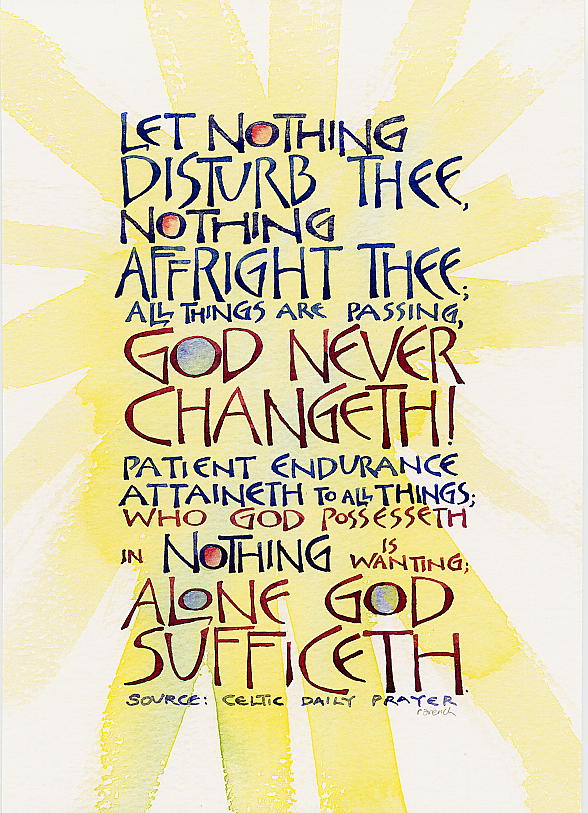 LET NOTHING
DISTURB THEE,
NOTHING
AFFRIGHT THEE;
ALL THINGS ARE PASSING,
GOD NEVER
CHANGETH!
PATIENT ENDURANCE
ATTAINETH TO ALL THINGS;
WHO GOD POSSESSETH
IN NOTHING IS WANTING;
ALONE GOD
SUFFICETH.
SOURCE: CELTIC DAILY PRAYER